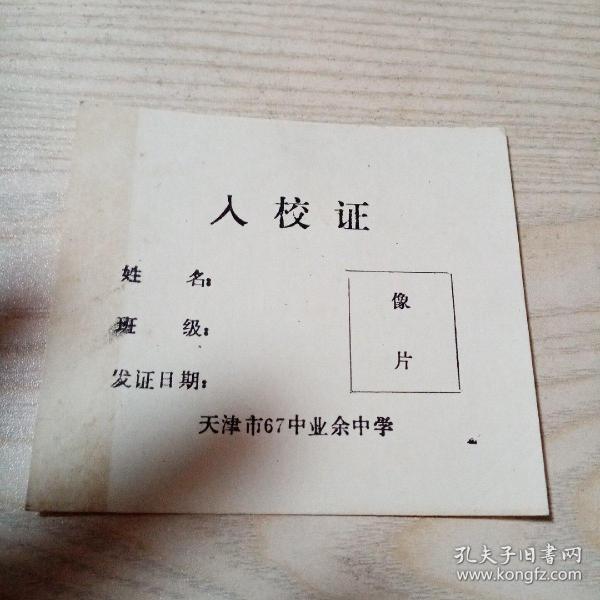 入校证
姓 名:
班 级:
发证日期:
像
片
天津市67中业余中学
孔夫子旧书网
www.kongfz.com